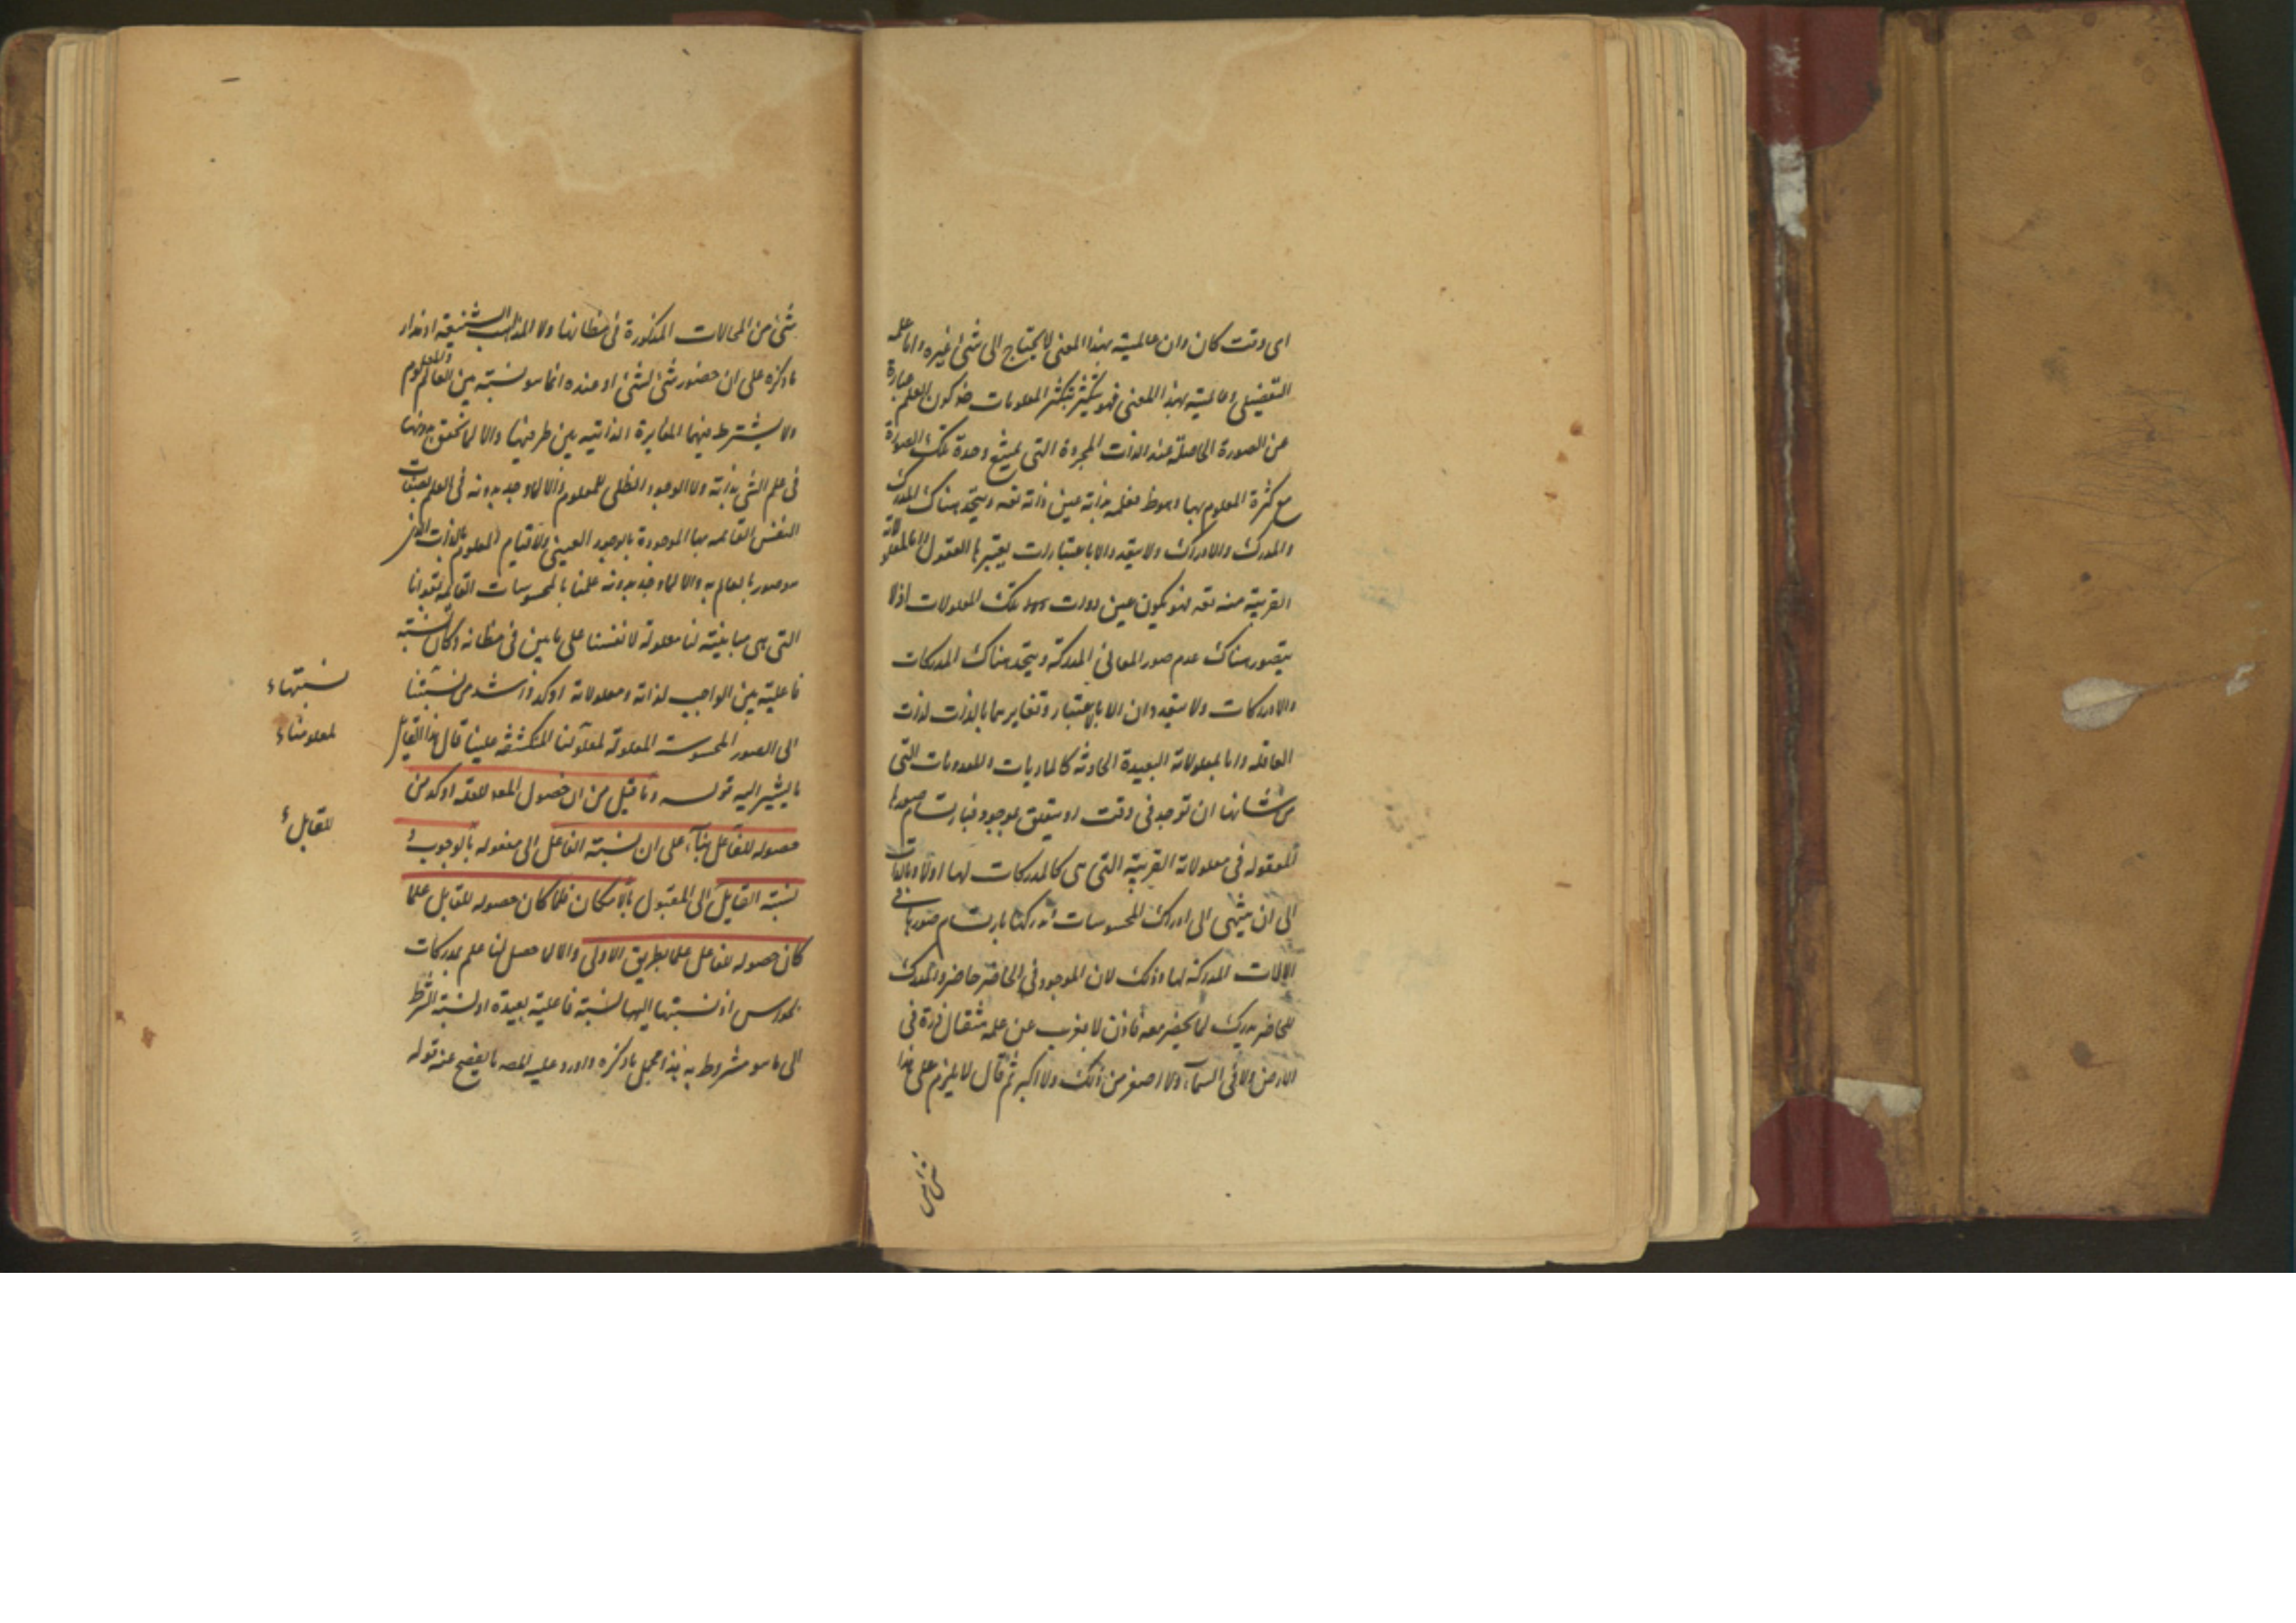 اى وقت كان وان عالميته بهذا المعنى لا يحتاج الى شئ غيره واما علمه
التفصيلى وعالميته بهذا المعنى فهو يتكثر بتكثر المعلومات ضرورة كون العلم عبارة
عن الصورة الحاصلة عند الذات المجردة التى يمتنع وحدة تلك الصورة
مع كثرة المعلوم بها وهو ط فعلمه بذاته عين ذاته تعه ويتحد هناك المدرك
والمدرك والادراك ولا يتعدد الا باعتبارات يعتبرها العقول واما لمعلولاته
القريبة منه تعه فهو يكون عين ذوات تلك المعلولات اذ لا
يتصور هناك عدم صور المعانى المدركة ويتحد هناك المدركات
والادراكات ولا يتعددان الا بالاعتبار وتغايرهما بالذات لذات
العاقله واما بمعلولاته البعيدة الحادثه كالماديات والمعدومات التى
من شانها ان توجد فى وقت او يتعلق بموجود فبارتسام صورها
المعقوله فى معلولاته القريبة التى هى كالمدركات لها اولا وبالذات
الى ان ينتهى الى ادراك المحسوسات المدركها بارتسام صورها فى
الالات المدركة لها وذلك لان الموجود فى الحاضر حاضر والمدرك
للحاضر يدرك لما يحضر معه فاذن لا يعزب عن علمه مثقال ذرة فى
الارض ولا فى السمآء ولا اصغر من ذلك ولا اكبر ثم قال لا يلزم على هذا
شئ من
شئ من المحالات المذكورة فى مظانها ولا المذاهب الشنيعه اذ مدار
ما ذكره على ان حضور شئ لشئ او عنده انما هو نسبته بين العالم والمعلوم
ولا يشترط فيهما المغايرة الذاتيه بين طرفيها والا لما تحقق بدونها
فى علم الشئ بذاته ولا الوجود الظلى للمعلوم والا لما وجد بدونه فى العلم بصفات
النفس القائمه بها الموجودة بالوجود العينى ولا قيام المعلوم بالذات الذى
هو صور بالعالم به والا لما وجد بدونه علمنا بالمحسوسات القائمه بقوانا
التى هى مباينته لنا معلولة لانفسنا على ما بين فى مظانه وكان نسبته
فاعليته بين الواجب لذاته ومعلولاته اوكد واشد من نسبتنا
نسبتهاء
الى الصور المحسوسة المعلولة لمعلولنا المنكشفه علينا قال هذا القايل
لمعلومناء
ما يشير اليه قوله وما قيل من ان حصول المعه للعله اوكد من
حصوله للفاعل بنآء على ان نسبته الفاعل الى مفعوله بالوجوب و
للقابل ء
نسبته القايل الى المقبول بالامكان فلما كان حصوله للقابل علما
كان حصوله للفاعل علما بطريق الاولى والا لما حصل لنا علم بمدركات
الحواس اذ نسبتها اليها نسبته فاعليته بعيدة او نسبته الشرط
الى ما هو مشروط به هذا مجمل ما ذكره واورد عليه المصه ما يفصح عنه قوله